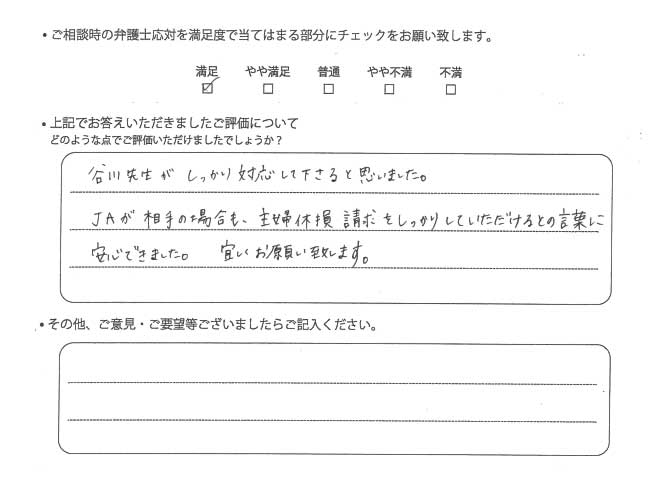 ・ご相談時の弁護士応対を満足度で当てはまる部分にチェックをお願い致します。
満足 やや満足 普通 やや不満 不満
☑ □ □ □ □
・上記でお答えいただきましたご評価について
どのような点でご評価いただけましたでしょうか?
谷川先生が しっかり対応して下さると思いました。
JAが相手の場合も、主婦休損 請求をしっかりしていただけるとの言葉に
安心できました。 宜しくお願い致します。
・その他、ご意見・ご要望等ございましたらご記入ください。